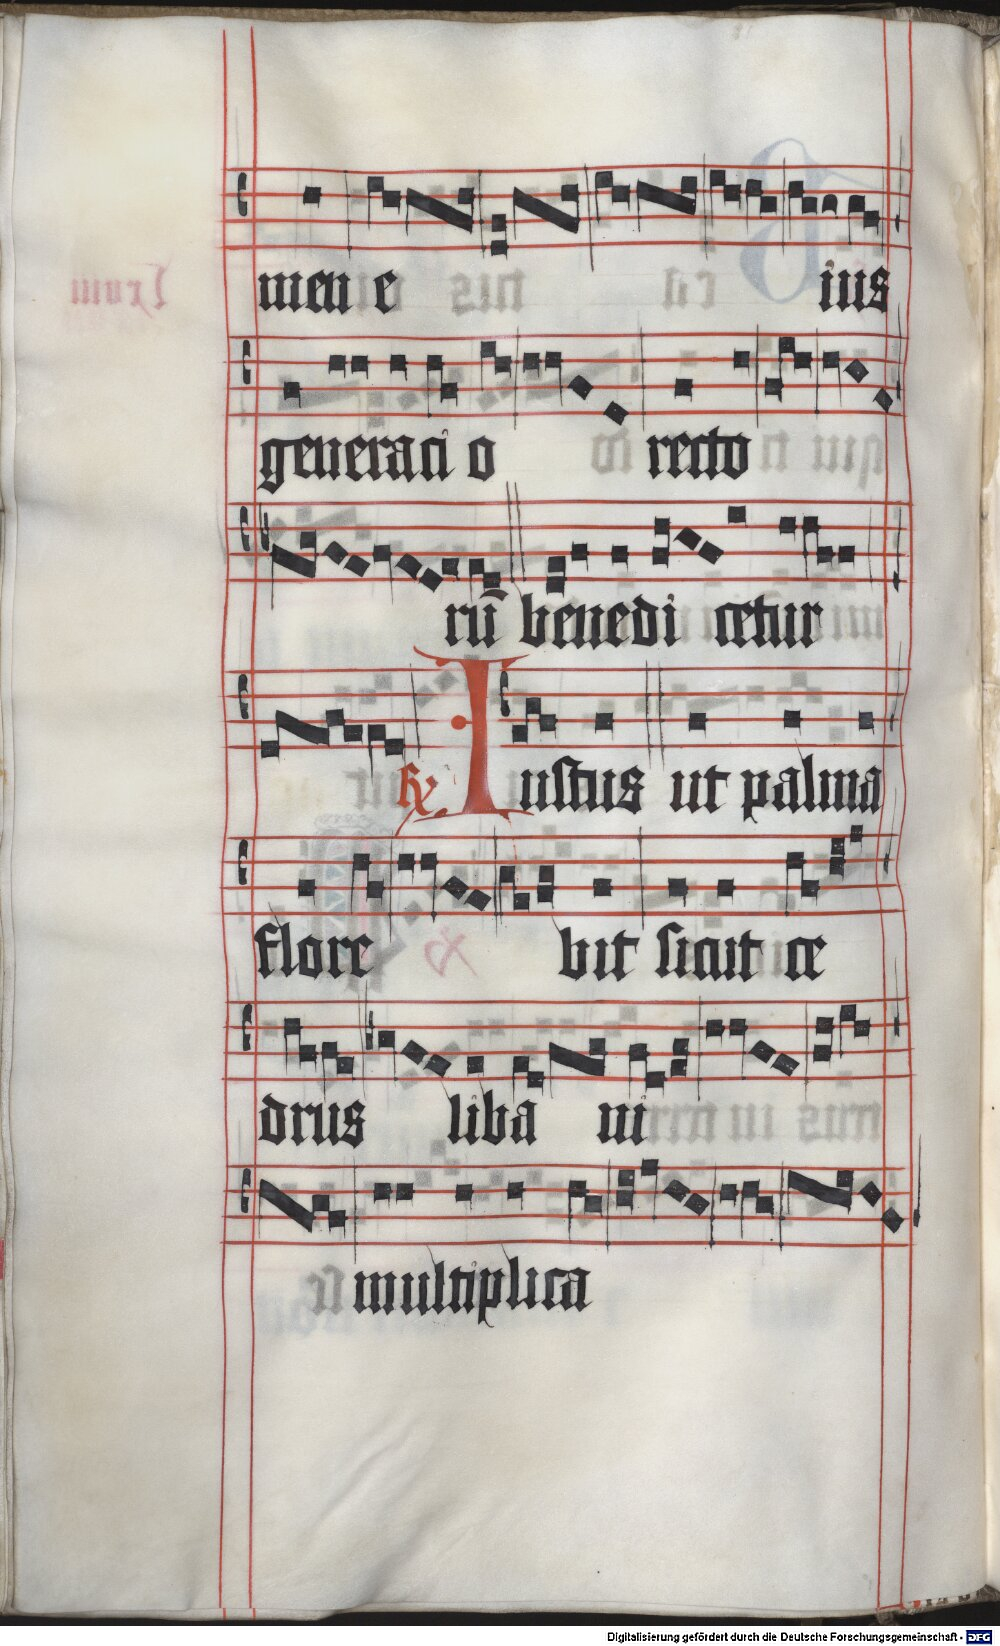 men e ius
generaci o recto
rū benedi cetur
℟ Iustus ut palma
flore bit sicut ce
drus liba ni
multiplica
Digitalisierung gefördert durch die Deutsche Forschungsgemeinschaft - DFG